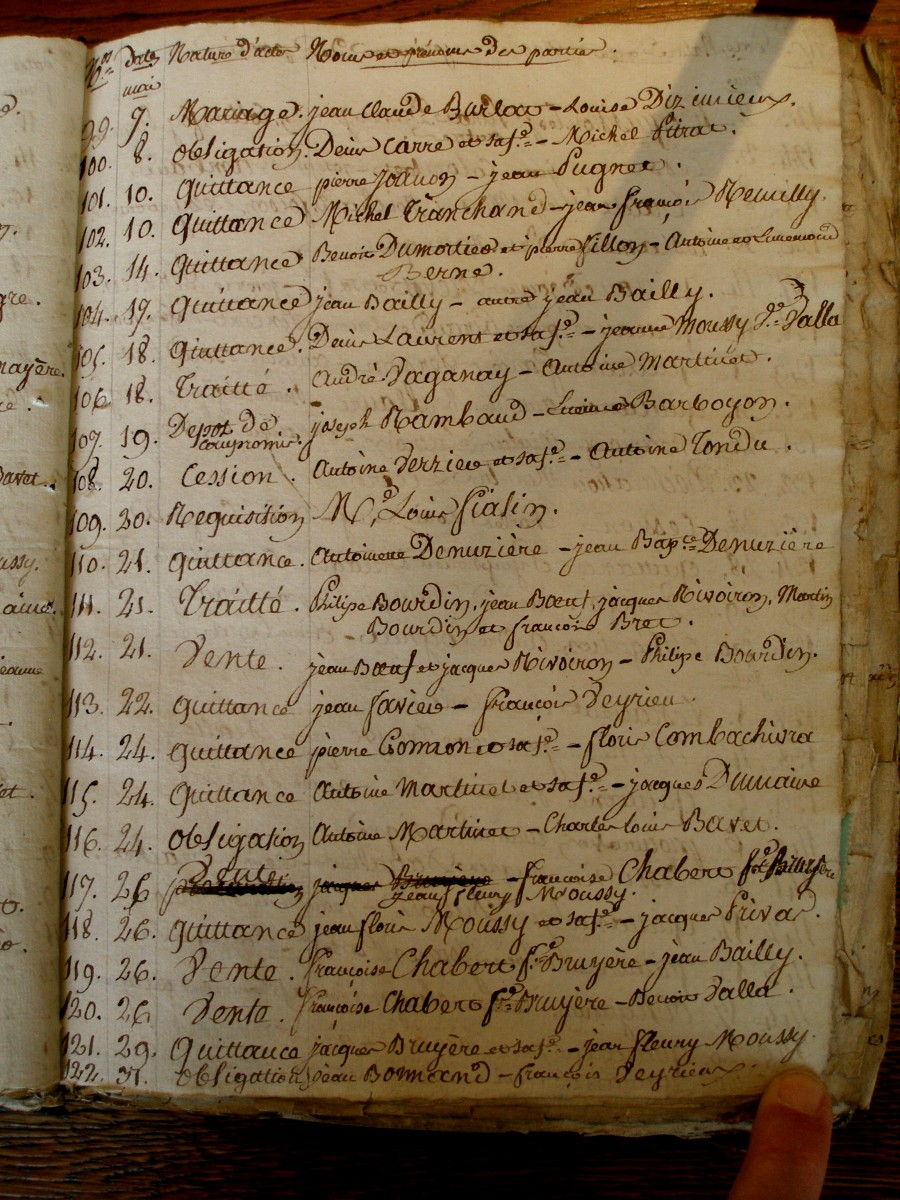 Nos date Nature d'actes Noms et prénoms des parties.
mai
99. 7. Mariage. jean Claude Burlat - Louise Dizimieux.
100. 8. Obligation. Denis Carre et sa fe. - Michel Pitrat.
101. 10. Quittance pierre Joanon - jean Pugnet.
102. 10. Quittance Michel Tranchand - jean françois Neuilly.
103. 14. Quittance Benoit Dumortier et pierre fillon - Antoine et
Berne.
104. 17. Quittance jean Bailly - autre jean Bailly.
105. 18. Quittance. Denis Laurent et sa fe. - jeanne Moussy Ve. Valla
106 18. Traitté. André Daganay - Antoine Martinet.
107. 19. Depot de joseph Rambaud - Barboyon.
compromis.
108. 20. Cession. Antoine Verzieu et sa fe. - Antoine Tondu.
109. 20. Requisition Me. Louis fialin.
110. 21. Quittance. Antoinette Denuzière - jean Bapce Denuzière
111. 21. Traitté. Philipe Bourdin, jean Bœuf, jacques Rivoiron, Martin
Bourdin et françois Bret.
112. 21. Vente. jean Bœuf et jacques Rivoiron - Philipe Bourdin.
113. 22. Quittance jean favier - françois Veyrieu.
114. 24. Quittance pierre Common et sa fe. - floris Combachivra
115. 24. Quittance Antoine Martinet et sa fe. - jacques Dumaine
116. 24. Obligation Antoine Martinet - Charles louis Bavet.
117. 26 Vente jacques Bruyère - françoise Chabert fe. Bruyère
jean fleury Moussy.
118. 26. Quittance jean floris Moussy et sa fe. - jacques Privat.
119. 26. Vente. françoise Chabert fe. Bruyère - jean Bailly.
120. 26 Vente. françoise Chabert fe. Bruyère - Benoit Valla.
121. 29. Quittance jacques Bruyère et sa fe. - jean fleury Moussy.
122. 31. Obligation jean Bonnand - françois Veyrieux.